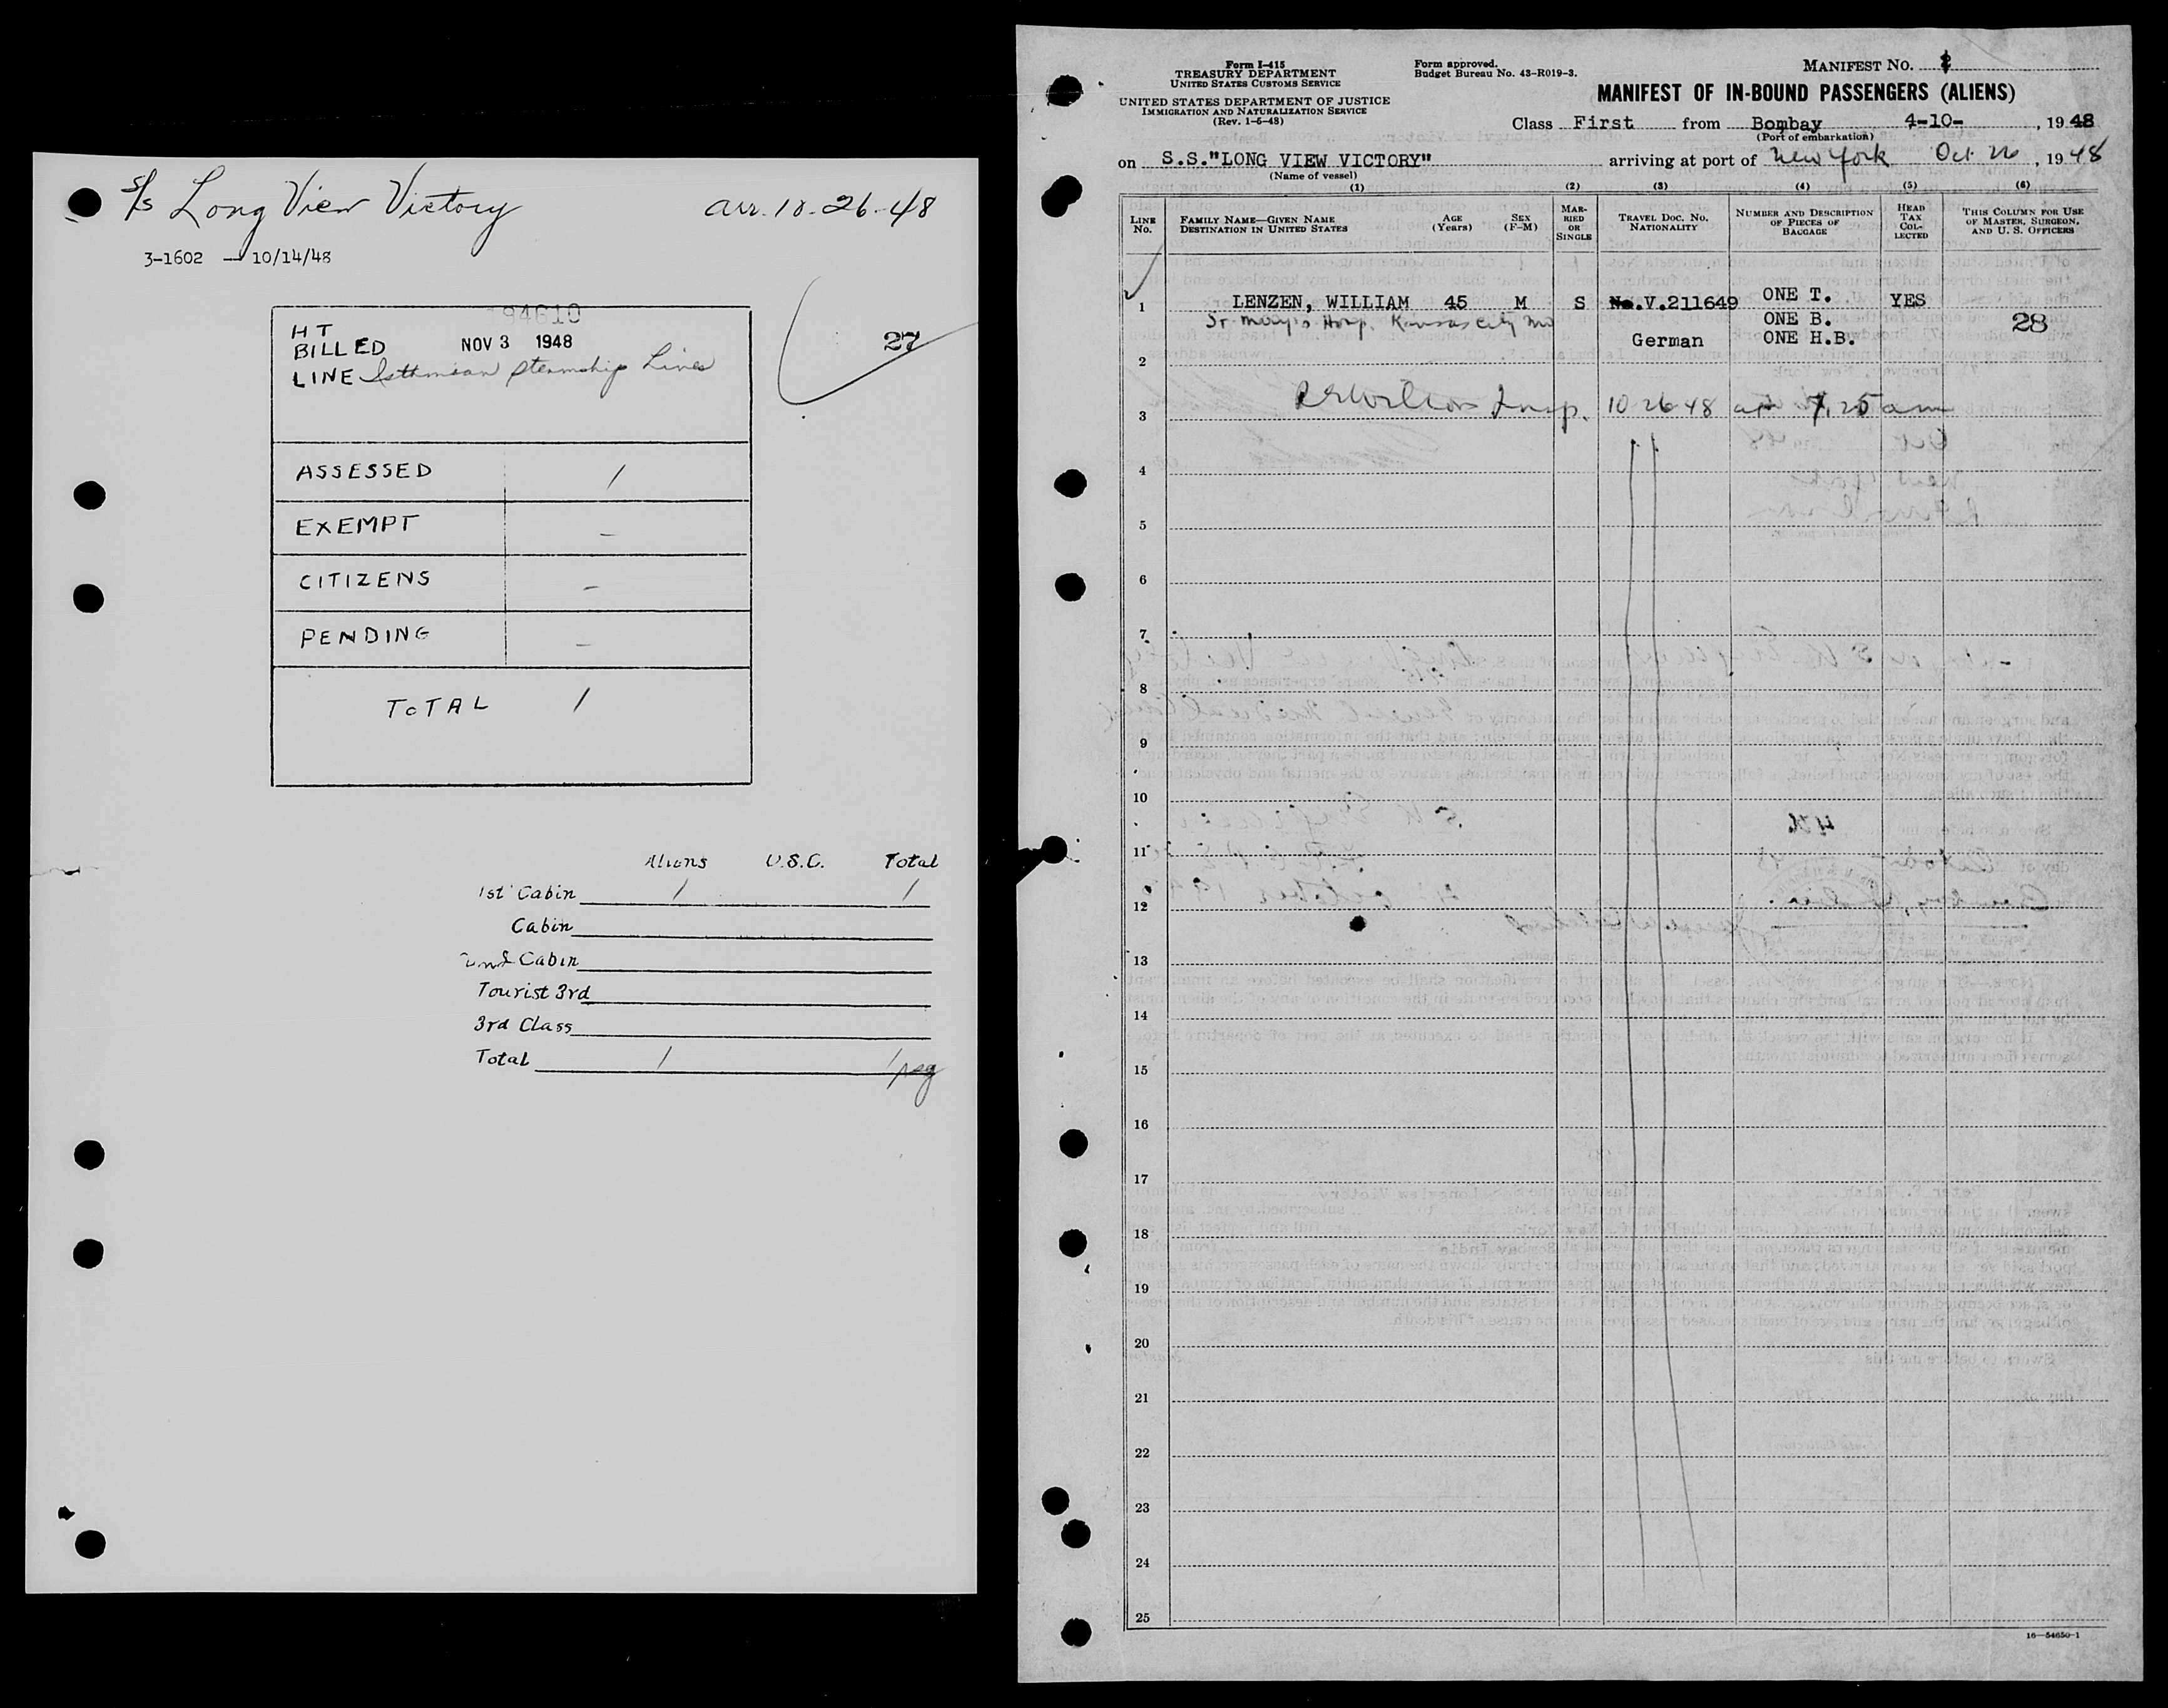 S/S Long View Victory arr. 10-26-48
3-1602 — 10/14/48
94610
HT
BILLED NOV 3 1948
LINE Isthmian Steamship Lines
27
ASSESSED 1
EXEMPT –
CITIZENS –
PENDING –
TOTAL 1
Aliens U.S.C. Total
1st Cabin 1 1
Cabin
2nd Cabin
Tourist 3rd
3rd Class
Total 1 1
Form I-415
TREASURY DEPARTMENT
UNITED STATES CUSTOMS SERVICE
UNITED STATES DEPARTMENT OF JUSTICE
IMMIGRATION AND NATURALIZATION SERVICE
(Rev. 1-6-48)
Form approved.
Budget Bureau No. 43-R019-3.
MANIFEST NO.
MANIFEST OF IN-BOUND PASSENGERS (ALIENS)
Class First from Bombay 4-10- , 1948
(Port of embarkation)
on S.S."LONG VIEW VICTORY" arriving at port of New York Oct 26, 1948
(Name of vessel)
(1) (2) (3) (4) (5) (6)
LINE No.
FAMILY NAME—GIVEN NAME
DESTINATION IN UNITED STATES
AGE (Years)
SEX (F-M)
MARRIED OR SINGLE
TRAVEL DOC. NO.
NATIONALITY
NUMBER AND DESCRIPTION OF PIECES OF BAGGAGE
HEAD TAX COLLECTED
THIS COLUMN FOR USE OF MASTER, SURGEON, AND U. S. OFFICERS
1 LENZEN, WILLIAM 45 M S No.V.211649 ONE T. YES
St. Mary's Hosp. Kansas City Mo ONE B. 28
German ONE H.B.
2
3 Insp. 10 26 48 at 7.25 am
4
5
6
7
8
9
10
11
12
13
14
15
16
17
18
19
20
21
22
23
24
25
16—54650-1